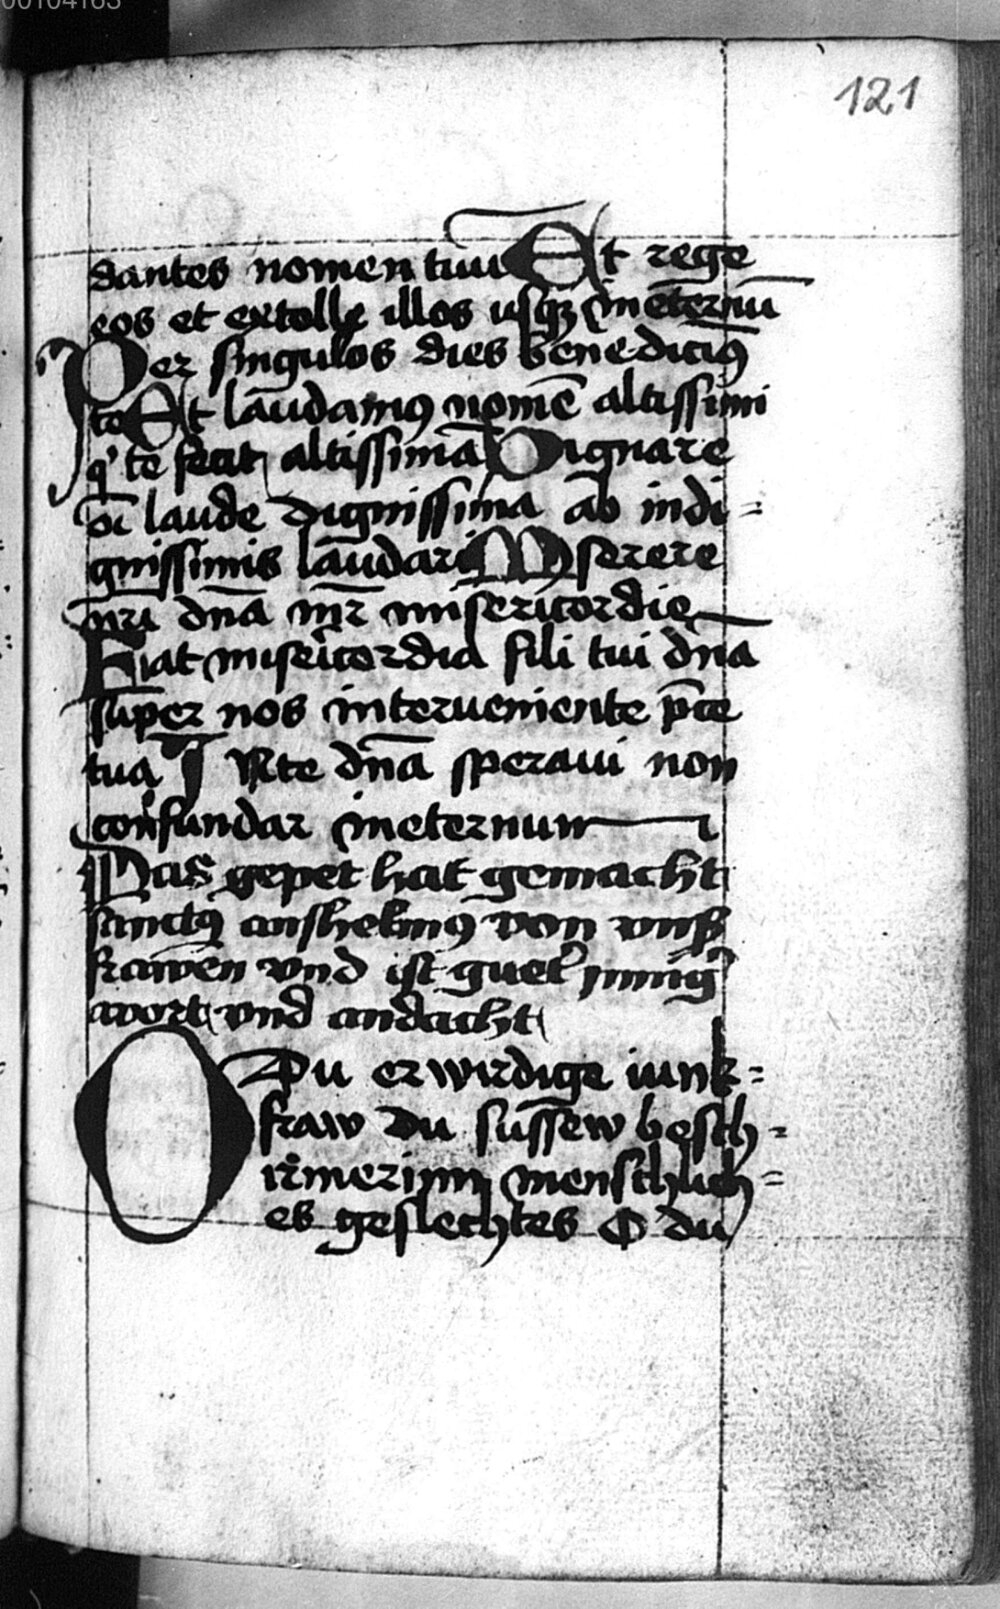 00104163
121
dantes nomen tuu Et rege
eos et extolle illos usqȝ ineternū
Per singulos dies benedicimꝰ
te Et laudamꝰ nomē altissimi
qͥ te fecit altissimā Dignare
oī laude dignissima ab indi=
gnissimis laudari Miserere
nr̄i dn̄a mr̄ misericordie
Fiat misericordia fili tui dn̄a
super nos interueniente p̄ce
tua I Nte dn̄a speraui non
confundar ineternum
Das gepet hat gemacht
sanctꝰ anshelmꝰ von vnß
frawen vnd ist gueter̄ innig̾
wort vnd andacht
O Du erwirdige iunk=
fraw du sussew besch=
irmerinn menschlich=
es geslechtes O du